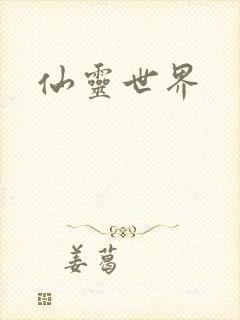 仙靈世界
姜葛